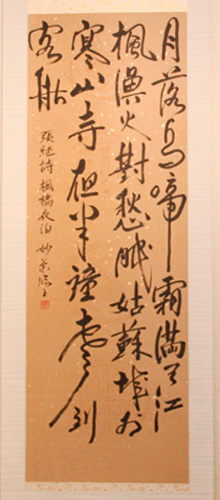 月落烏啼霜滿天江
楓漁火對愁眠姑蘇城外
寒山寺夜半鐘聲到
客船
張繼詩 楓橋夜泊 妙